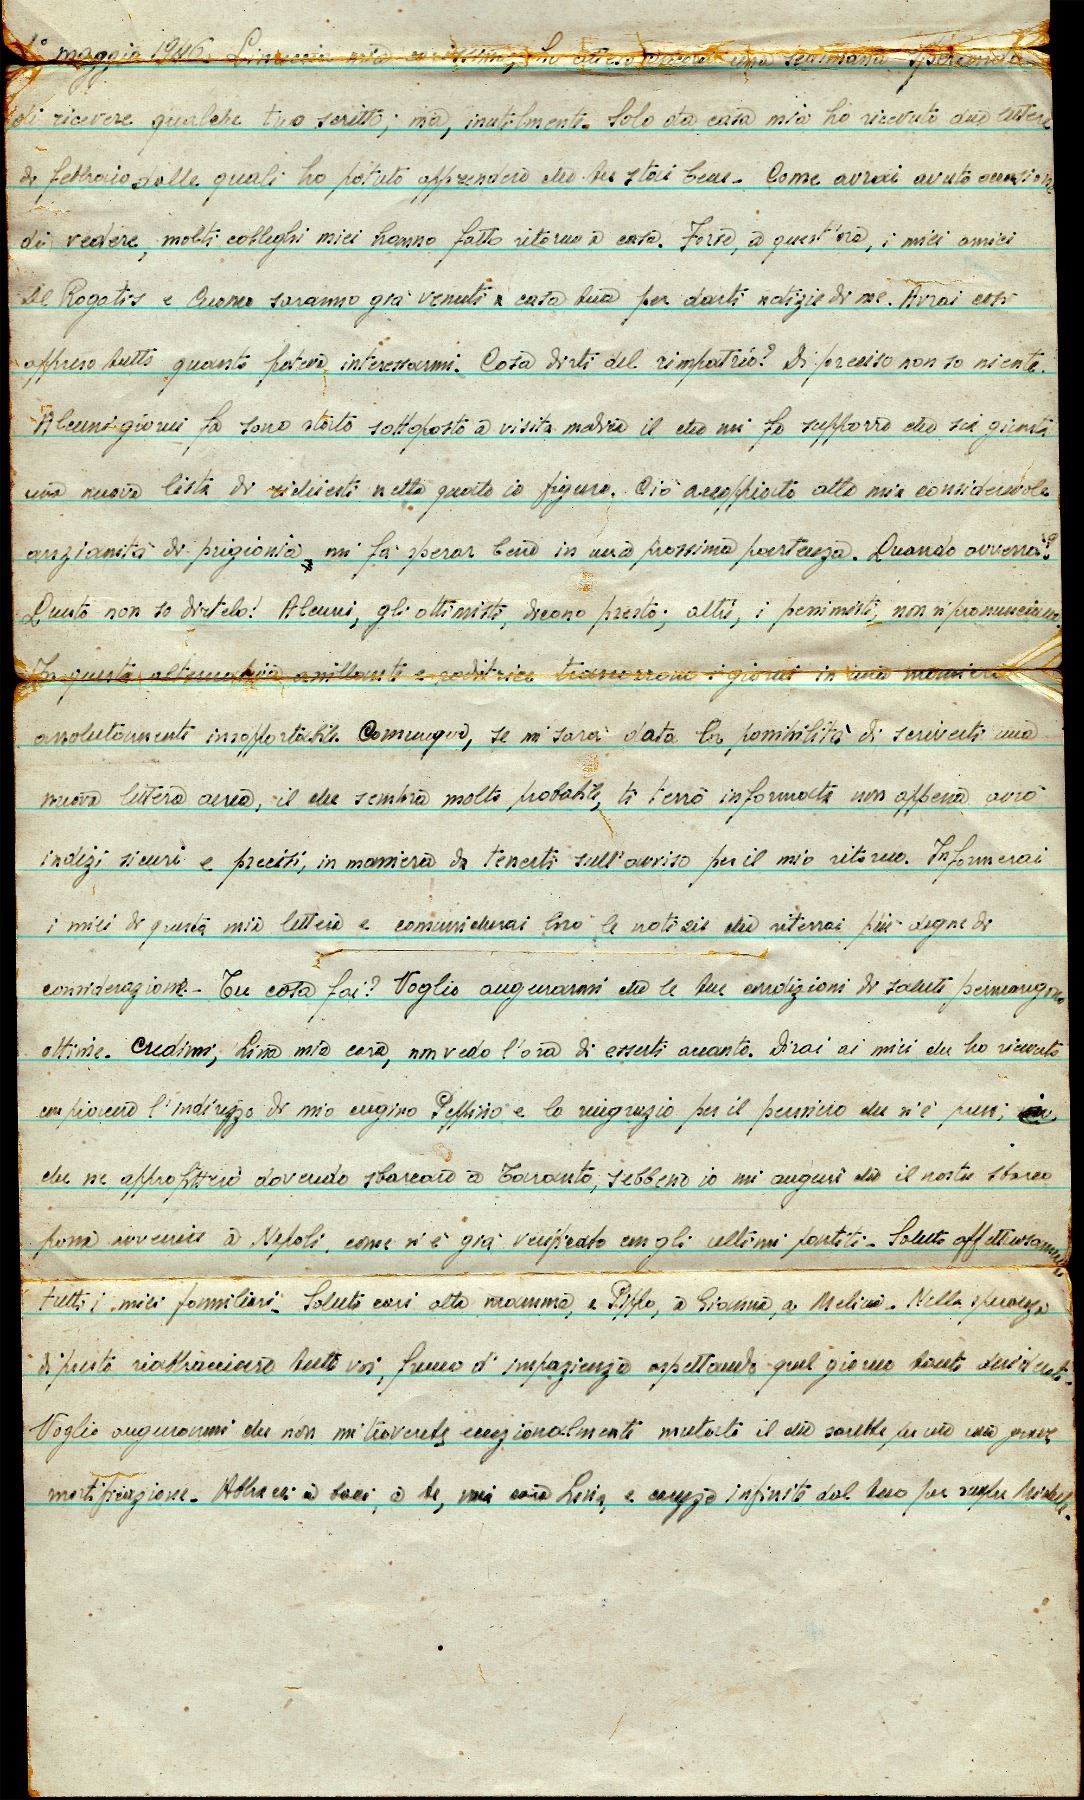 1° maggio 1946. Linuccia mia carissima, ho atteso ancora una settimana sperando
di ricevere qualche tuo scritto; ma, inutilmente. Solo da casa mia ho ricevuto due lettere
di febbraio dalle quali ho potuto apprendere che tu stai bene. Come avrai avuto occasione
di vedere, molti colleghi miei hanno fatto ritorno a casa. Forse, a quest'ora, i miei amici
De Rogatis e Cuomo saranno già venuti a casa tua per darti notizie di me. Avrai così
appreso tutto quanto poteva interessarmi. Cosa dirti del rimpatrio? Di preciso non so niente.
Alcuni giorni fa sono stato sottoposto a visita medica il che mi fa supporre che sia giunta
una nuova lista di richiesti nella quale io figuro. Ciò accoppiato alla mia considerevole
anzianità di prigionia mi fa sperar bene in una prossima partenza. Quando avverrà?
Questo non so dirtelo! Alcuni, gli ottimisti, dicono presto; altri, i pessimisti, non si pronunciano.
In questa alternativa assillante e snervante trascorrono i giorni in una maniera
assolutamente insopportabile. Comunque, se mi sarà data la possibilità di scriverti una
nuova lettera aerea, il che sembra molto probabile, ti terrò informata non appena avrò
indizi sicuri e precisi, in maniera da tenerti sull'avviso per il mio ritorno. Informerai
i miei di questa mia lettera e comunicherai loro le notizie che riterrai più degne di
considerazione. Tu cosa fai? Voglio augurarmi che le tue condizioni di salute permangano
ottime. Credimi, Lina mia cara, non vedo l'ora di esserti accanto. Dirai ai miei che ho ricevuto
con piacere l'indirizzo di mio cugino Peppino e lo ringrazio per il pensiero che s'è preso;
che ne approfitterò dovendo sbarcare a Taranto, sebbene io mi auguri che il nostro sbarco
possa avvenire a Napoli, come s'è già verificato con gli ultimi partiti. Saluto affettuosamente
tutti i miei familiari. Saluti cari alla mamma, a Pippo, a Gianna, a Melina. Nella speranza
di presto riabbracciare tutti voi, fremo d'impazienza aspettando quel giorno tanto desiderato.
Voglio augurarmi che non mi troverete eccezionalmente mutato il che sarebbe per me una grave
mortificazione. Abbracci e baci, a te, mia cara Lina, e carezze infinite dal tuo per sempre Michele.